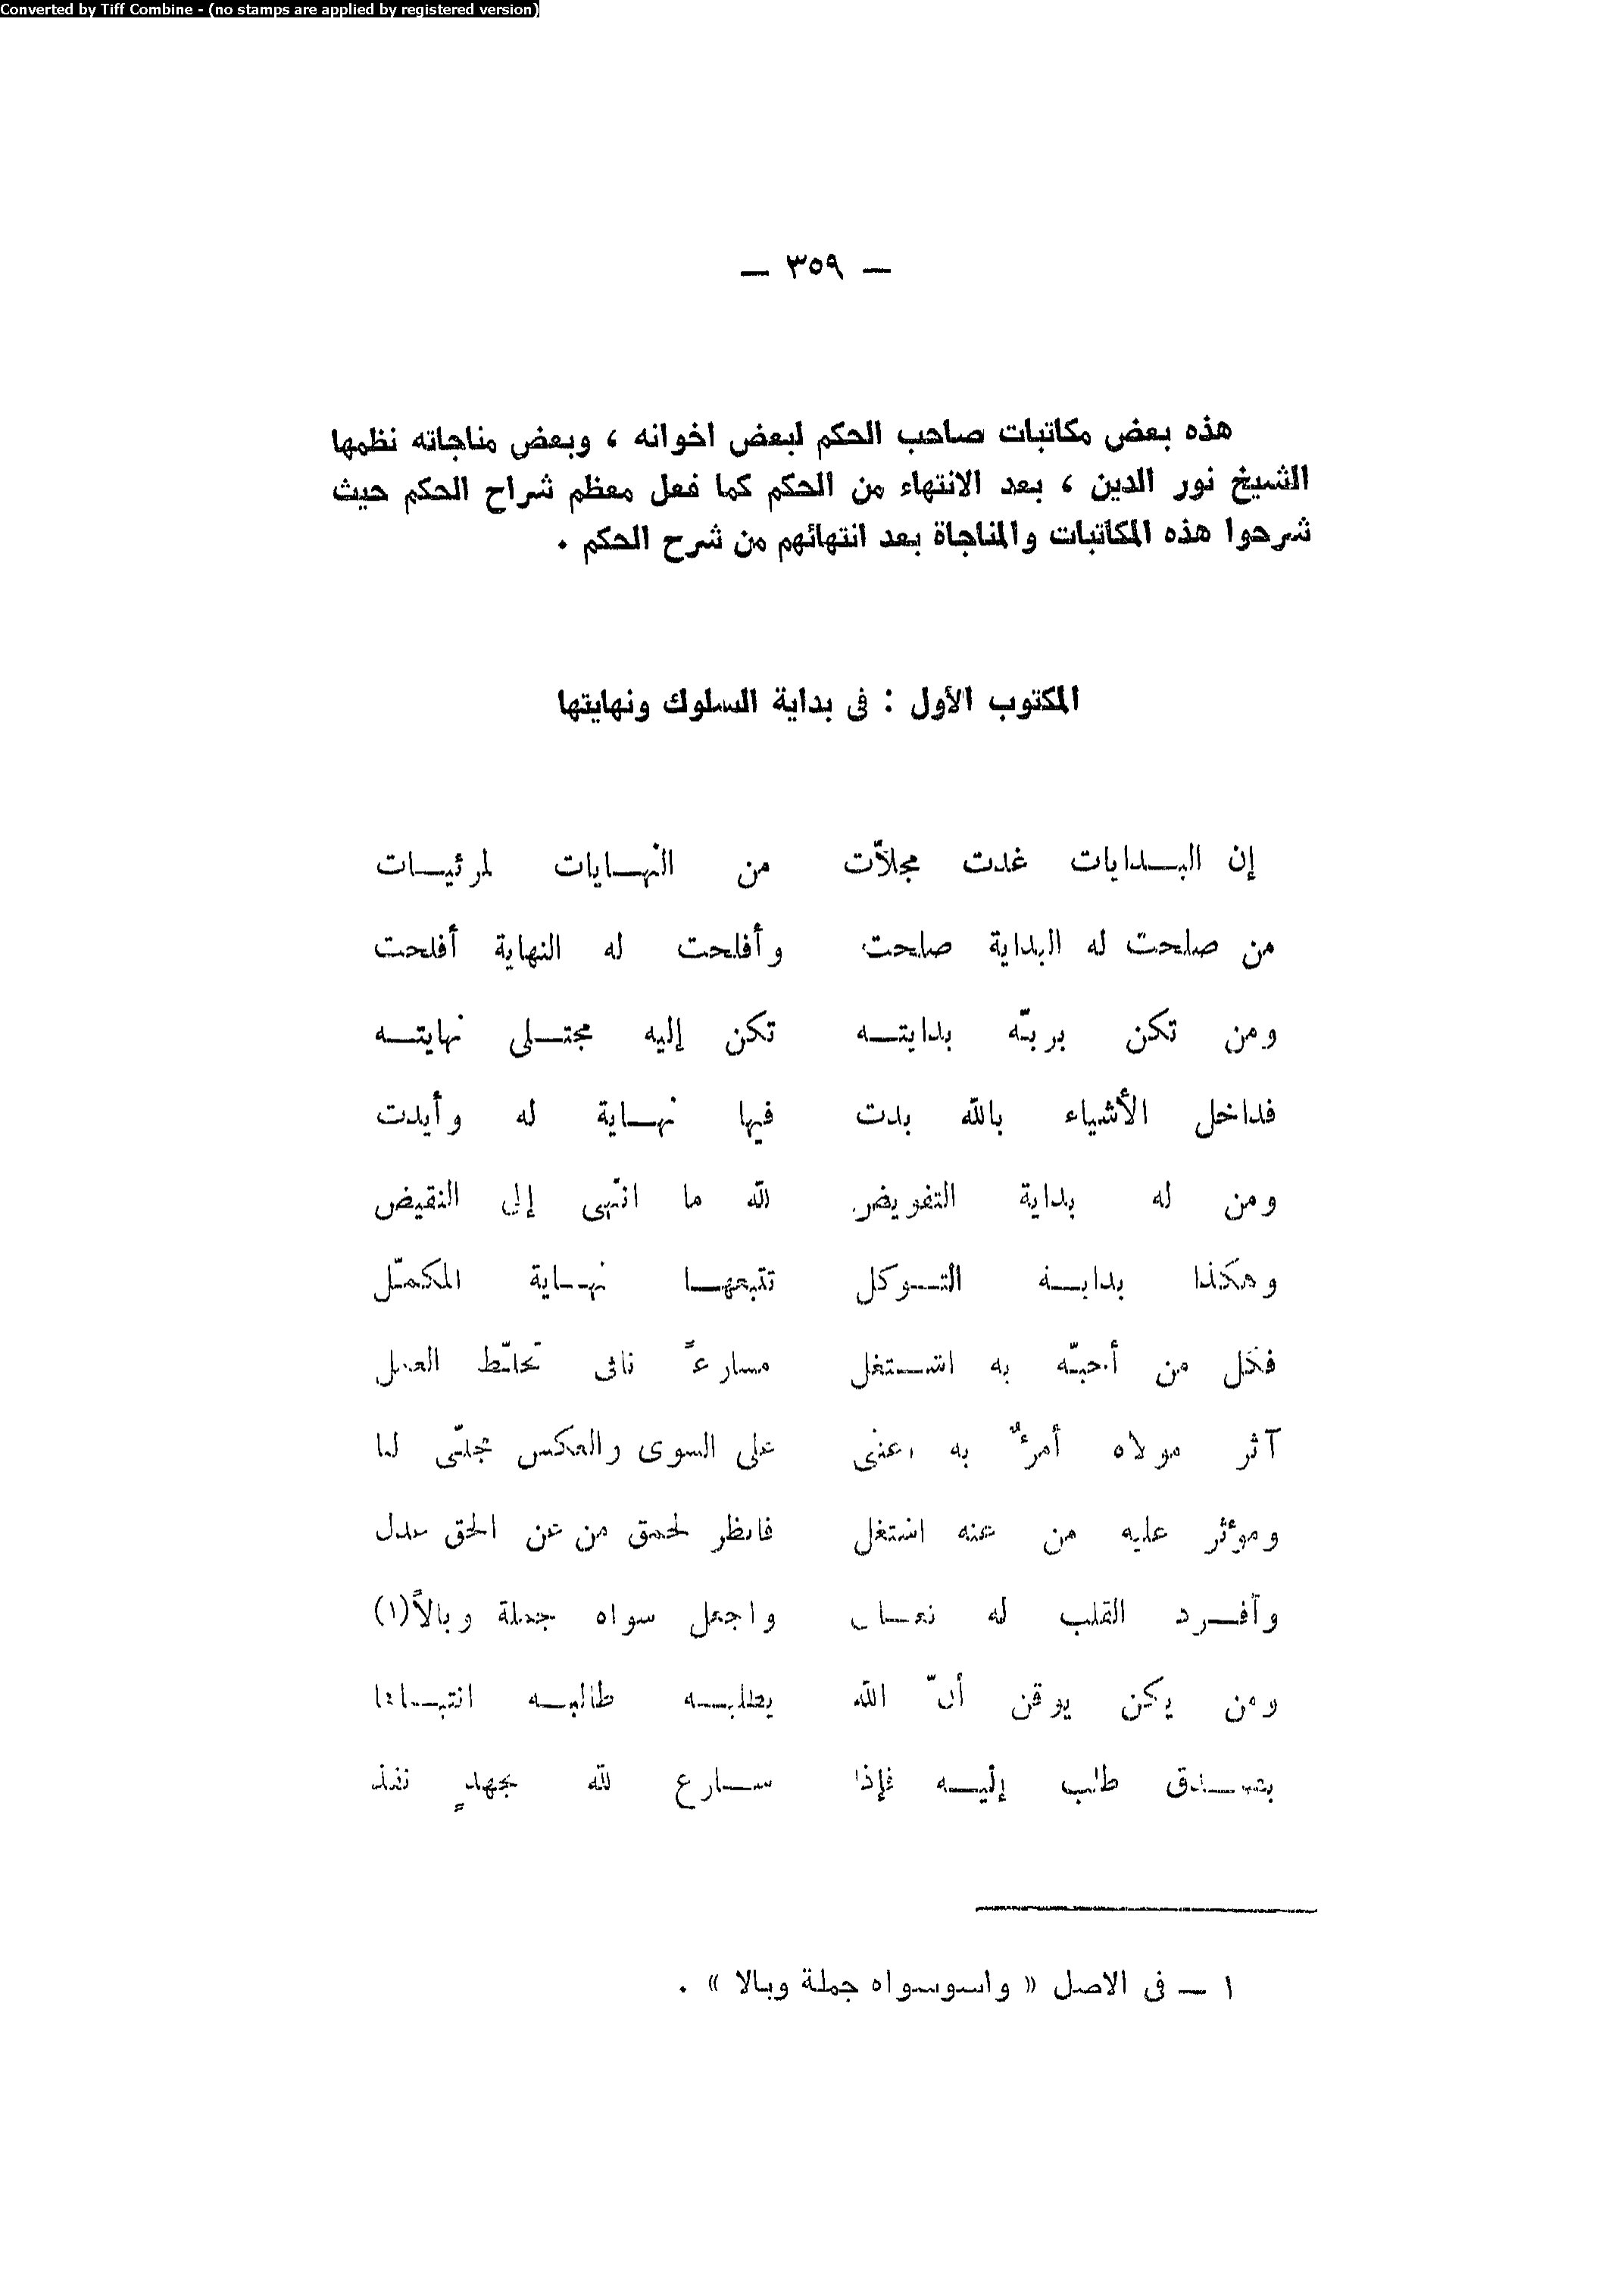 Converted by Tiff Combine - (no stamps are applied by registered version)
— ٣٥٩ —
هذه بعض مكاتبات صاحب الحكم لبعض اخوانه ، وبعض مناجاته نظمها
الشيخ نور الدين ، بعد الانتهاء من الحكم كما فعل معظم شراح الحكم حيث
شرحوا هذه المكاتبات والمناجاة بعد انتهائهم من شرح الحكم .
المكتوب الأول : فى بداية السلوك ونهايتها
إن البدايات غدت مجلاّت من النهايات لمرئيات
من صلحت له البداية صلحت وأفلحت له النهاية أفلحت
ومن تكن بربّه بدايته تكن إليه مجتلى نهايته
فداخل الأشياء بالله بدت فيها نهاية له وأيدت
ومن له بداية التفويض لله ما انتهى إلى النقيض
وهكذا بداية التوكل تتبعها نهاية المكمّل
فكل من أحبّه به اشتغل مسارعاً العمل
آثر مولاه أمرءٌ به اعتنى على السوى والعكس لنا
ومؤثر عليه من عنه اشتغل فانظر لحمق من عن الحق عدل
وأفرد القلب له واجعل سواه جملة وبالاً(١)
ومن يكن يوقن أنّ الله يطلبه طالبه انتباها
بصدق طلب إليه فإذا سارع لله بجهدٍ نفذ
١ — فى الاصل « واسوسواه جملة وبالا » .